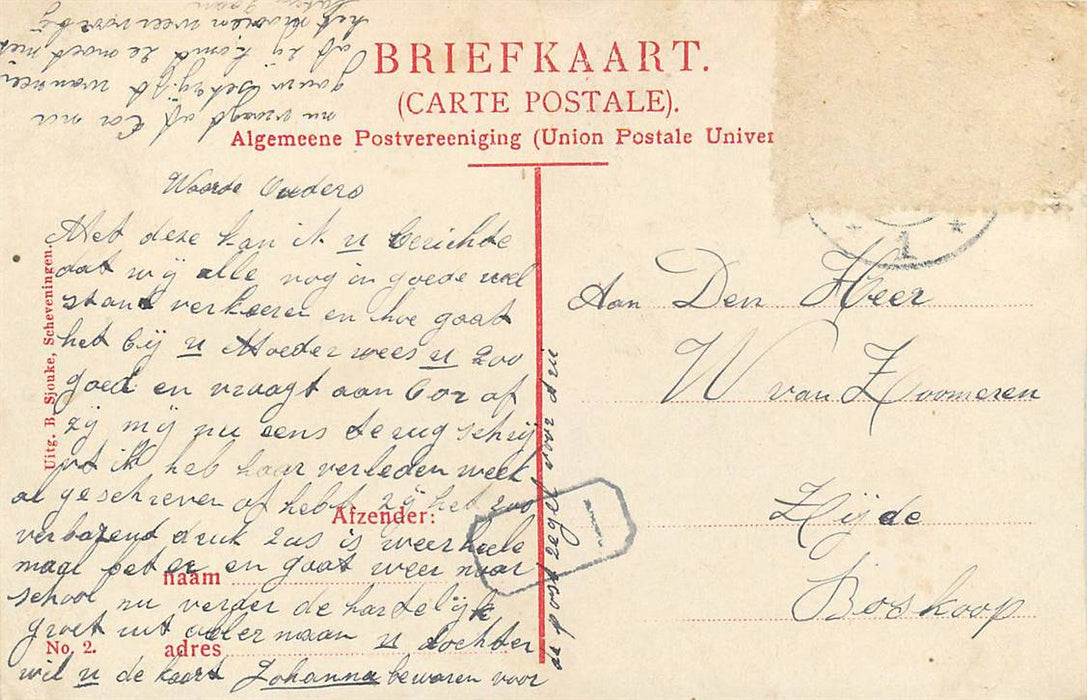 BRIEFKAART.
(CARTE POSTALE).
Algemeene Postvereeniging (Union Postale Univer
Waarde Ouders
Met deze kan ik u berichte
dat wij alle nog in goede wel
stand verkeeren en hoe gaat
het bij u Moeder wees u zoo
goed en vraagt aan Cor of
zij mij nu eens terug schrij
vt ik heb haar verleden week
al geschreven of hebt zy het zoo
verbazend druk Zus is weer heele
maal beter en gaat weer naar
school nu verder de hartelijk
groet uit aller naam u dochter
wil u de kaart Johanna bewaren voor
de postzegel voor drie
nu vraagt of Cor nu
gouw schrijft wanneer
of zy komt ze moet met
het sporen weer voorbij
laten gaan
Aan Den Heer
W van Zoomeren
Zijde
Boskoop
1
1
Afzender:
naam
adres
No. 2.
Uitg. B. Sjouke, Scheveningen.